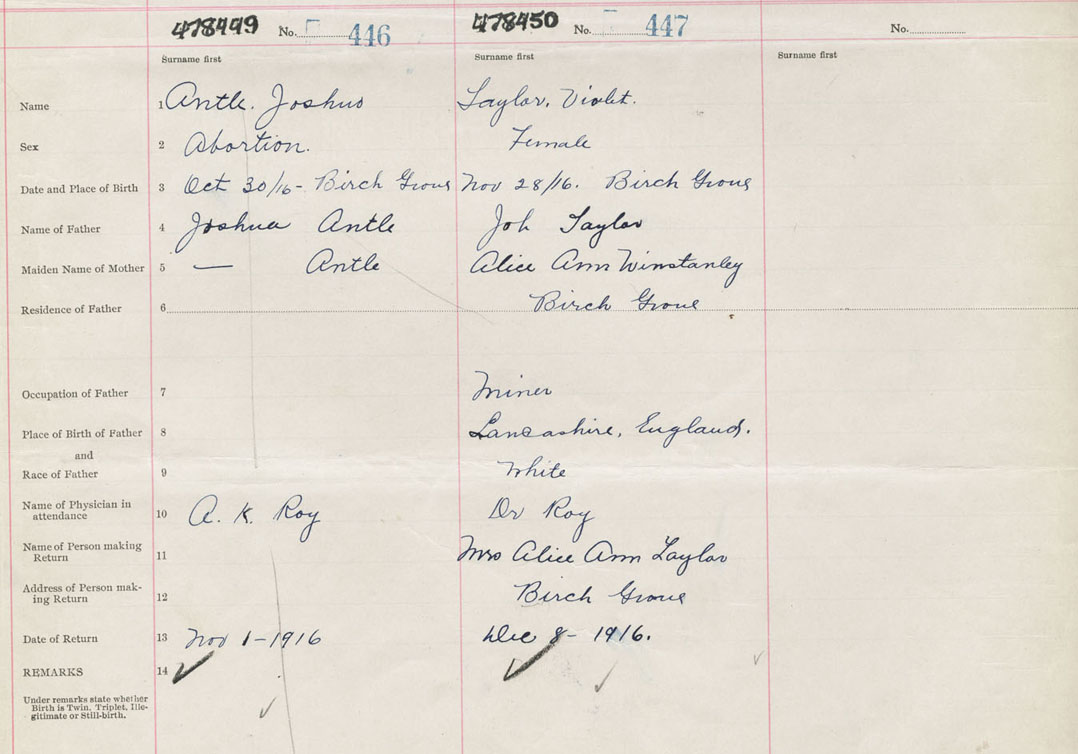 478449 No. 446 478450 No. 447 No.
Surname first Surname first Surname first
Name 1 Antle. Joshua Taylor, Violet.
Sex 2 Abortion. Female
Date and Place of Birth 3 Oct 30/16 - Birch Grove Nov 28/16. Birch Grove
Name of Father 4 Joshua Antle Joh Taylor
Maiden Name of Mother 5 — Antle Alice Ann Winstanley
Residence of Father 6 Birch Grove
Occupation of Father 7 Miner
Place of Birth of Father 8 Lancashire, England.
and
Race of Father 9 White
Name of Physician in
attendance 10 A. K. Roy Dr Roy
Name of Person making
Return 11 Mrs Alice Ann Taylor
Address of Person mak-
ing Return 12 Birch Grove
Date of Return 13 Nov 1 - 1916 Dec 8 - 1916.
REMARKS 14
Under remarks state whether
Birth is Twin, Triplet, Ille-
gitimate or Still-birth.